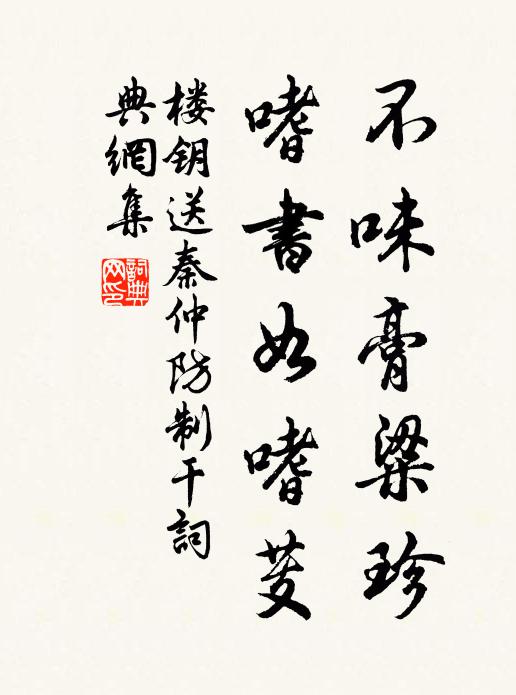 不味膏粱珍
嗜書如嗜芰
楼钥送秦仲防制干詞
典網集
詞典网印